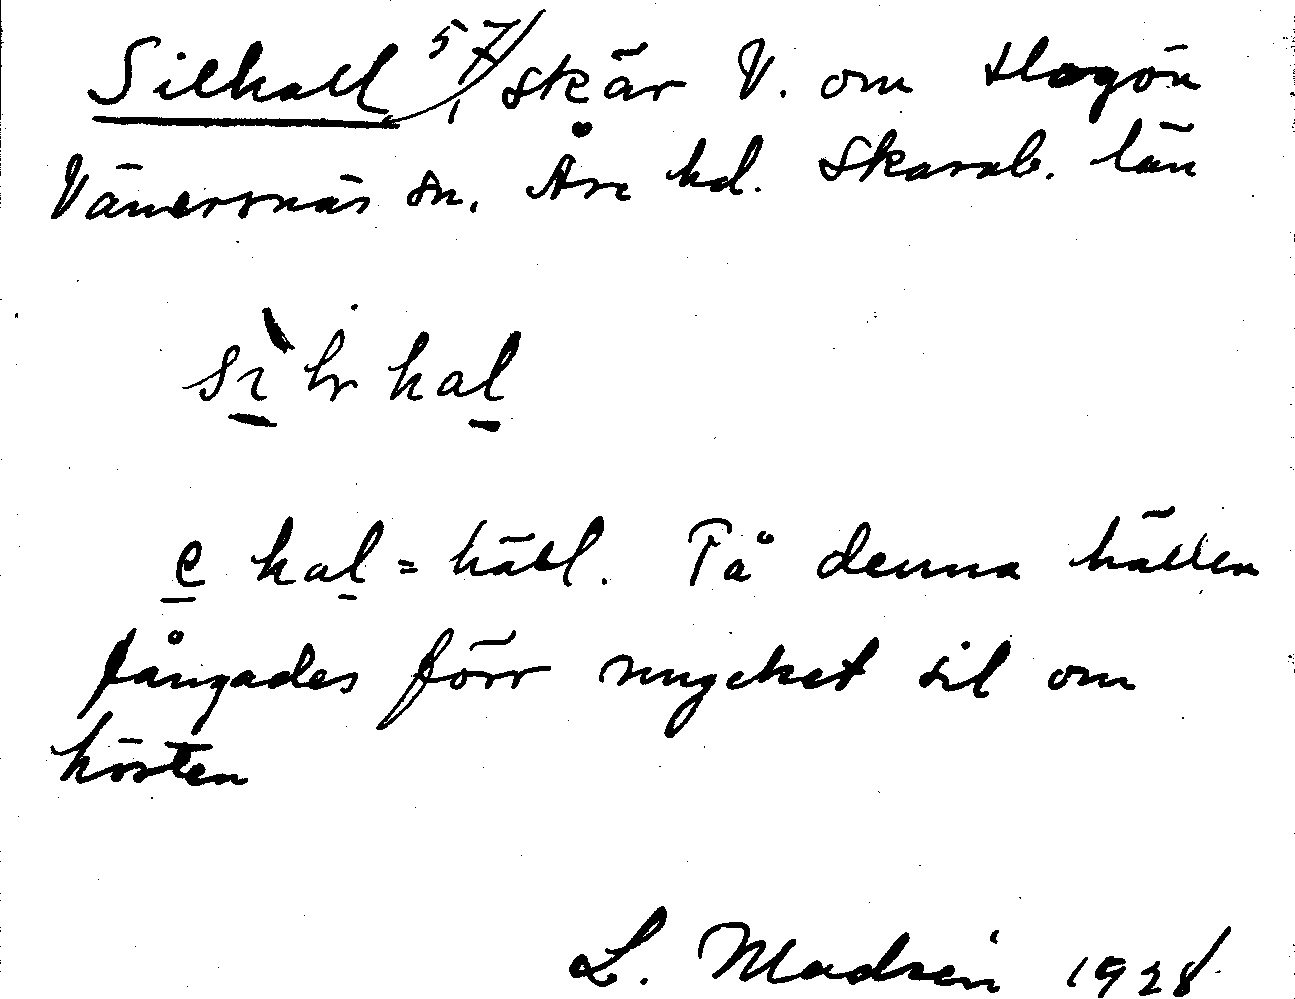 Silhall 57/ Skär V. om Hogön
Vänersnäs sn. Åse hd. Skarab. län
hal
e hal = häll. På denna hällen
fångades förr mycket sil om
hösten
L. Madsén 1928